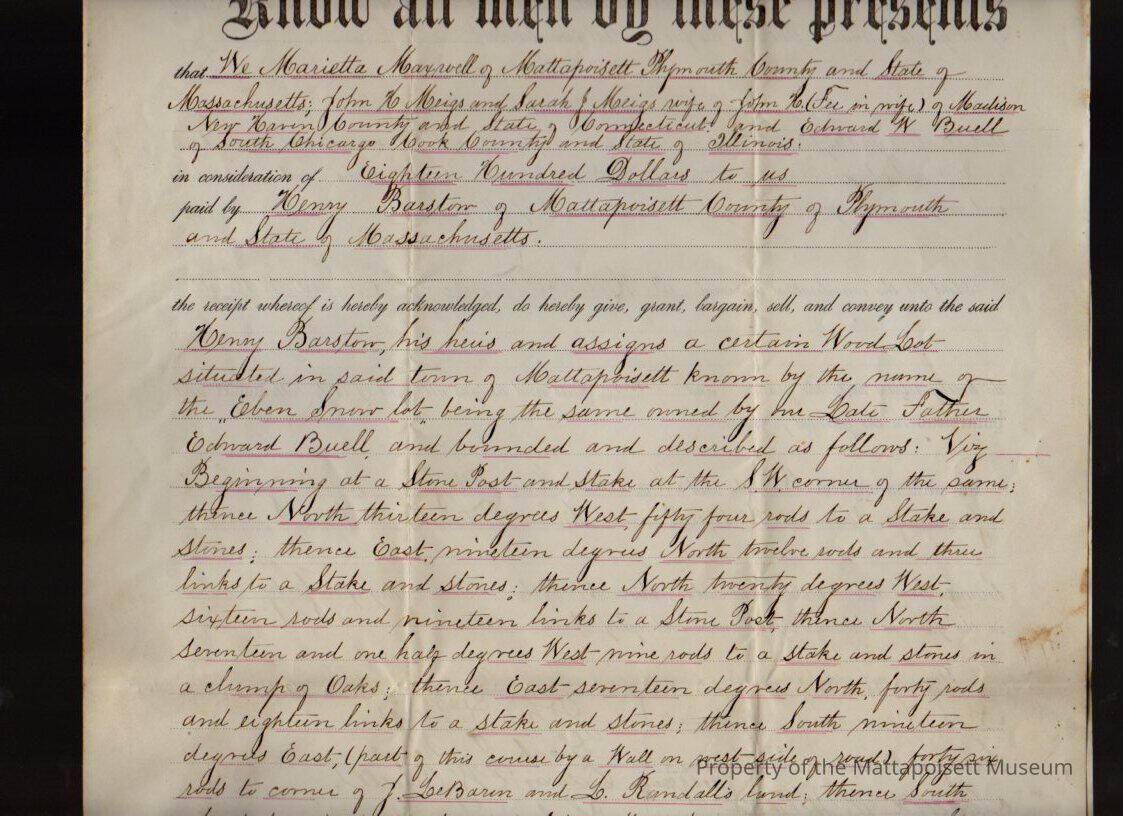 Know all men by these presents
that We Marietta Maxwell of Mattapoisett Plymouth County and State of
Massachusetts; John H Meigs and Sarah J Meigs wife of John H. (Fee in wife) of Madison
New Haven County and State of Connecticut and Edward W Buell
of South Chicargo Cook County and State of Illinois.
in consideration of Eighteen Hundred Dollars to us
paid by Henry Barstow of Mattapoisett County of Plymouth
and State of Massachusetts.
the receipt whereof is hereby acknowledged, do hereby give, grant, bargain, sell, and convey unto the said
Henry Barstow, his heirs and assigns a certain Wood Lot
situated in said town of Mattapoisett known by the name of
the "Eben Snow lot" being the same owned by our Late Father
Edward Buell, and bounded and described as follows: Viz
Beginning at a Stone Post and stake at the S.W. corner of the same;
thence North thirteen degrees West, fifty four rods to a Stake and
stones; thence East, nineteen degrees North twelve rods and three
links to a Stake and stones; thence North twenty degrees West,
sixteen rods and nineteen links to a Stone Post, thence North
seventeen and one half degrees West nine rods to a stake and stones in
a clump of Oaks; thence East seventeen degrees North, forty rods
and eighteen links to a stake and stones; thence South nineteen
degrees East, (part of this course by a Wall on west side of road) forty six
rods to corner of J. LeBaron and L. Randall's land; thence South
Property of the Mattapoisett Museum